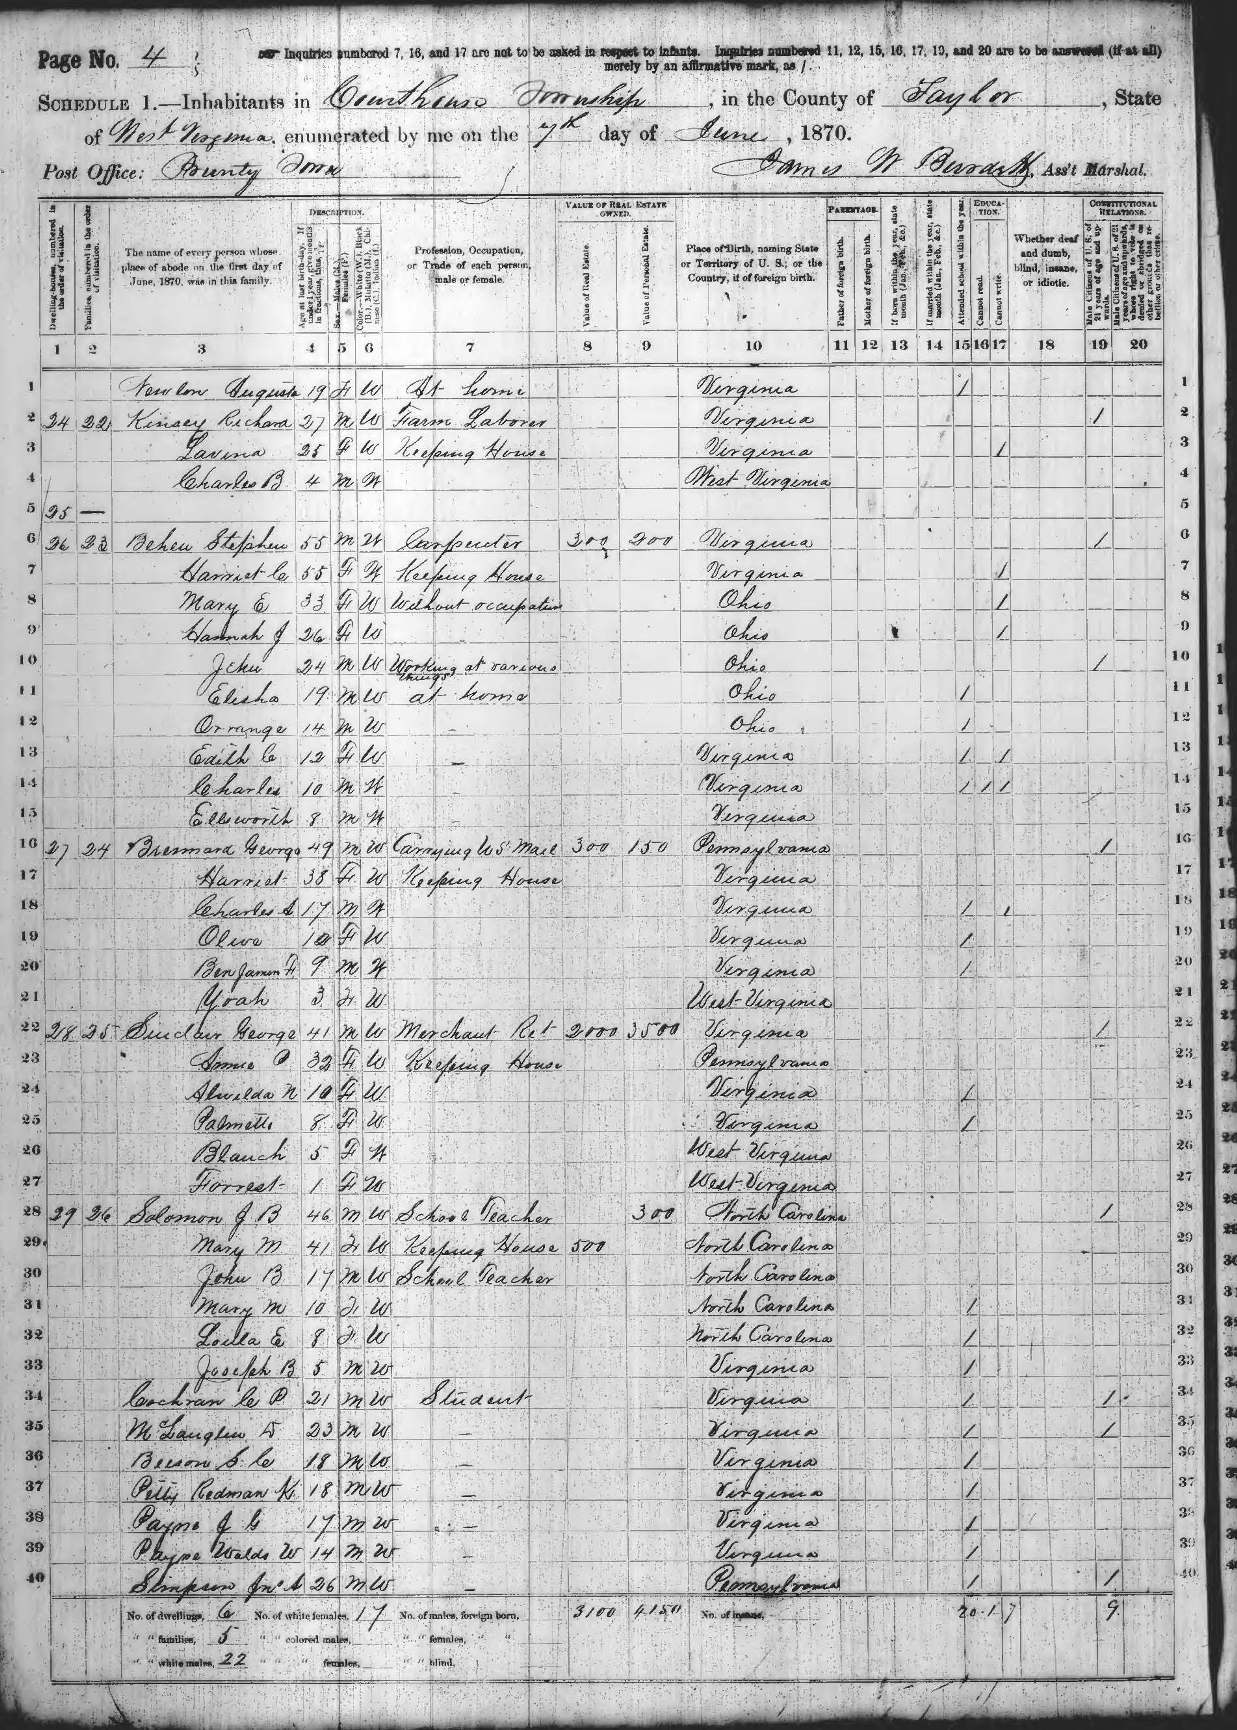 Page No. 4
Inquiries numbered 7, 16, and 17 are not to be asked in respect to infants. Inquiries numbered 11, 12, 15, 16, 17, 19, and 20 are to be answered (if at all)
merely by an affirmative mark, as /.
SCHEDULE 1.—Inhabitants in Courthouse Township, in the County of Taylor, State
of West Virginia, enumerated by me on the 7th day of June, 1870.
Post Office: Town
James W Burdett, Ass't Marshal.
DESCRIPTION. VALUE OF REAL ESTATE OWNED. PARENTAGE. EDUCATION. CONSTITUTIONAL RELATIONS.
Dwelling-houses, numbered in the order of visitation.
Families, numbered in the order of visitation.
The name of every person whose place of abode on the first day of June, 1870, was in this family.
Age at last birth-day. If under 1 year, give months in fractions, thus, 3/12
Sex.—Males (M.), Females (F.)
Color.—White (W.), Black (B.), Mulatto (M.), Chinese (C.), Indian (I.)
Profession, Occupation, or Trade of each person, male or female.
Value of Real Estate.
Value of Personal Estate.
Place of Birth, naming State or Territory of U. S.; or the Country, if of foreign birth.
Father of foreign birth.
Mother of foreign birth.
If born within the year, state month (Jan., Feb., &c.)
If married within the year, state month (Jan., Feb., &c.)
Attended school within the year.
Cannot read.
Cannot write.
Whether deaf and dumb, blind, insane, or idiotic.
Male Citizens of U. S. of 21 years of age and upwards.
Male Citizens of U. S. of 21 years of age and upwards, whose right to vote is denied or abridged on other grounds than rebellion or other crime.
1 2 3 4 5 6 7 8 9 10 11 12 13 14 15 16 17 18 19 20
1 Newlon Augusta 19 F W At home Virginia / 1
2 24 22 Kinsey Richard 27 M W Farm Laborer Virginia / 2
3 Lavina 25 F W Keeping House Virginia / 3
4 Charles B 4 M W West Virginia 4
5 25 — 5
6 26 23 Behen Stephen 55 M W Carpenter 300 200 Virginia / 6
7 Harriet C 55 F W Keeping House Virginia / 7
8 Mary E 33 F W Without occupation Ohio / 8
9 Hannah J 26 F W – Ohio / 9
10 John 24 M W Working at various things Ohio / 10
11 Elisha 19 M W at home Ohio / 11
12 Orrange 14 M W – Ohio / 12
13 Edith C 12 F W – Virginia / / 13
14 Charles 10 M W – Virginia / / / 14
15 Ellsworth 8 M W – Virginia 15
16 27 24 George 49 M W Carrying US Mail 300 150 Pennsylvania / 16
17 Harriet 38 F W Keeping House Virginia 17
18 Charles A 17 M W Virginia / / 18
19 Olive 10 F W Virginia / 19
20 Benjamin F 9 M W Virginia / 20
21 3 F W West Virginia 21
22 28 25 Sinclair George 41 M W Merchant Ret 2000 3500 Virginia / 22
23 Annie P 32 F W Keeping House Pennsylvania 23
24 Alwilda N 10 F W Virginia / 24
25 Palmetto 8 F W Virginia / 25
26 Blanch 5 F W West Virginia 26
27 Forrest 1 F W West Virginia 27
28 29 26 Solomon J B 46 M W School Teacher 300 North Carolina / 28
29 Mary M 41 F W Keeping House 500 North Carolina 29
30 John B 17 M W School Teacher North Carolina 30
31 Mary M 10 F W North Carolina / 31
32 Loella E 8 F W North Carolina / 32
33 Joseph B 5 M W Virginia / 33
34 Cochran C P 21 M W Student Virginia / / 34
35 McLauglin D 23 M W – Virginia / / 35
36 Beeson S. C 18 M W – Virginia / 36
37 Petty Redman K 18 M W – Virginia / 37
38 Payne J G 17 M W – Virginia / 38
39 Payne Waldo W 14 M W – Virginia / 39
40 Simpson Jno A 26 M W – Pennsylvania / / 40
No. of dwellings, 6 No. of white females, 17 No. of males, foreign born, 3100 4150 No. of insane, 20 1 7 9
" " families, 5 " " colored males, " " females, " "
" " white males, 22 " " " females, " " blind,